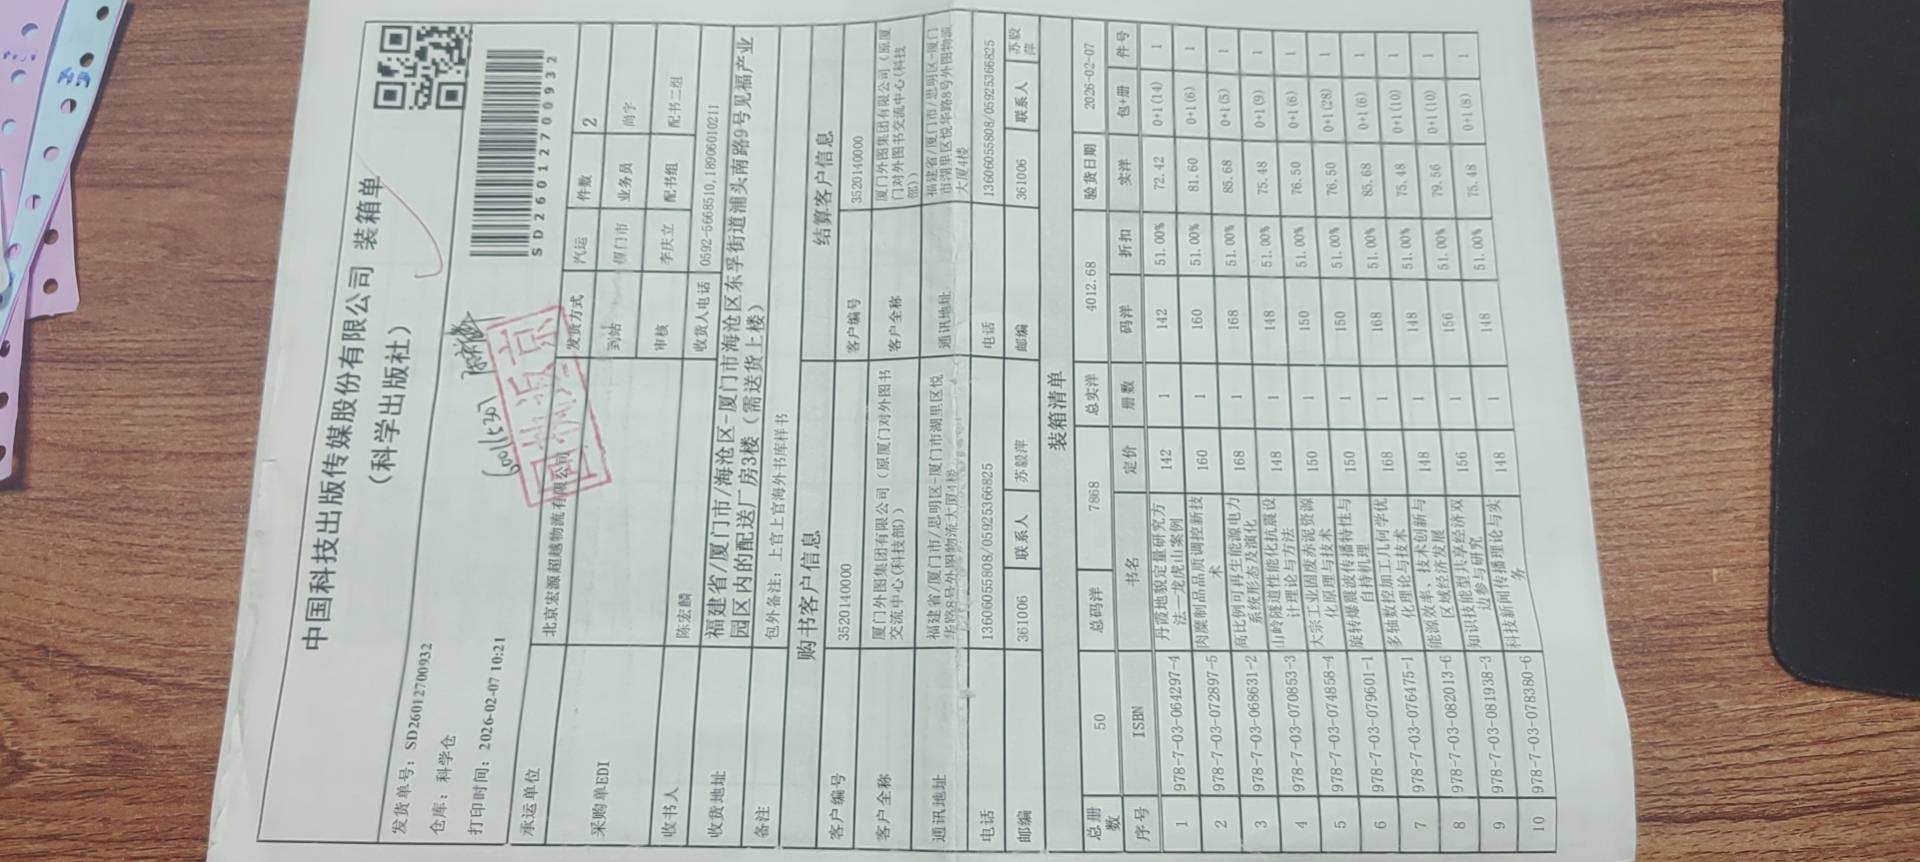 中国科技出版传媒股份有限公司 装箱单
（科学出版社）
发货单号：SD26012700932
仓库：科学仓
打印时间：2026-02-07 10:21
SD26012700932
承运单位 北京宏源超越物流有限公司 发货方式 汽运 件数 2
采购单EDI 到站 厦门市 业务员 尚宇
收书人 陈宏麟 审核 李庆立 配书组 配书二组
收货人电话 0592-5668510,18906010211
收货地址 福建省/厦门市/海沧区-厦门市海沧区东孚街道浦头南路9号见福产业
园区内的配送厂房3楼（需送货上楼）
备注 包外备注：上官上官海外书库样书
购书客户信息 结算客户信息
客户编号 3520140000 客户编号 3520140000
客户全称 厦门外图集团有限公司（原厦门对外图书
交流中心(科技部)） 客户全称 厦门外图集团有限公司（原厦
门对外图书交流中心(科技
部)）
通讯地址 福建省/厦门市/思明区-厦门市湖里区悦
华路8号外图物流大厦4楼 通讯地址 福建省/厦门市/思明区-厦门
市湖里区悦华路8号外图物流
大厦4楼
电话 13606055808/05925366825 电话 13606055808/05925366825
邮编 361006 联系人 苏毅萍 邮编 361006 联系人 苏毅
萍
装箱清单
总册
数 50 总码洋 7868 总实洋 4012.68 验货日期 2026-02-07
序号 ISBN 书名 定价 册数 码洋 折扣 实洋 包+册 件号
1 978-7-03-064297-4 丹霞地貌定量研究方
法—龙虎山案例 142 1 142 51.00% 72.42 0+1(14) 1
2 978-7-03-072897-5 肉糜制品品质调控新技
术 160 1 160 51.00% 81.60 0+1(6) 1
3 978-7-03-068631-2 高比例可再生能源电力
系统形态及演化 168 1 168 51.00% 85.68 0+1(5) 1
4 978-7-03-070853-3 山岭隧道性能化抗震设
计理论与方法 148 1 148 51.00% 75.48 0+1(9) 1
5 978-7-03-074858-4 大宗工业固废赤泥资源
化原理与技术 150 1 150 51.00% 76.50 0+1(6) 1
6 978-7-03-079601-1 旋转爆震波传播特性与
自持机理 150 1 150 51.00% 76.50 0+1(28) 1
7 978-7-03-076475-1 多轴数控加工几何学优
化理论与技术 168 1 168 51.00% 85.68 0+1(6) 1
8 978-7-03-082013-6 能源效率、技术创新与
区域经济发展 148 1 148 51.00% 75.48 0+1(10) 1
9 978-7-03-081938-3 知识技能型共享经济双
边参与研究 156 1 156 51.00% 79.56 0+1(10) 1
10 978-7-03-078380-6 科技新闻传播理论与实
务 148 1 148 51.00% 75.48 0+1(8) 1